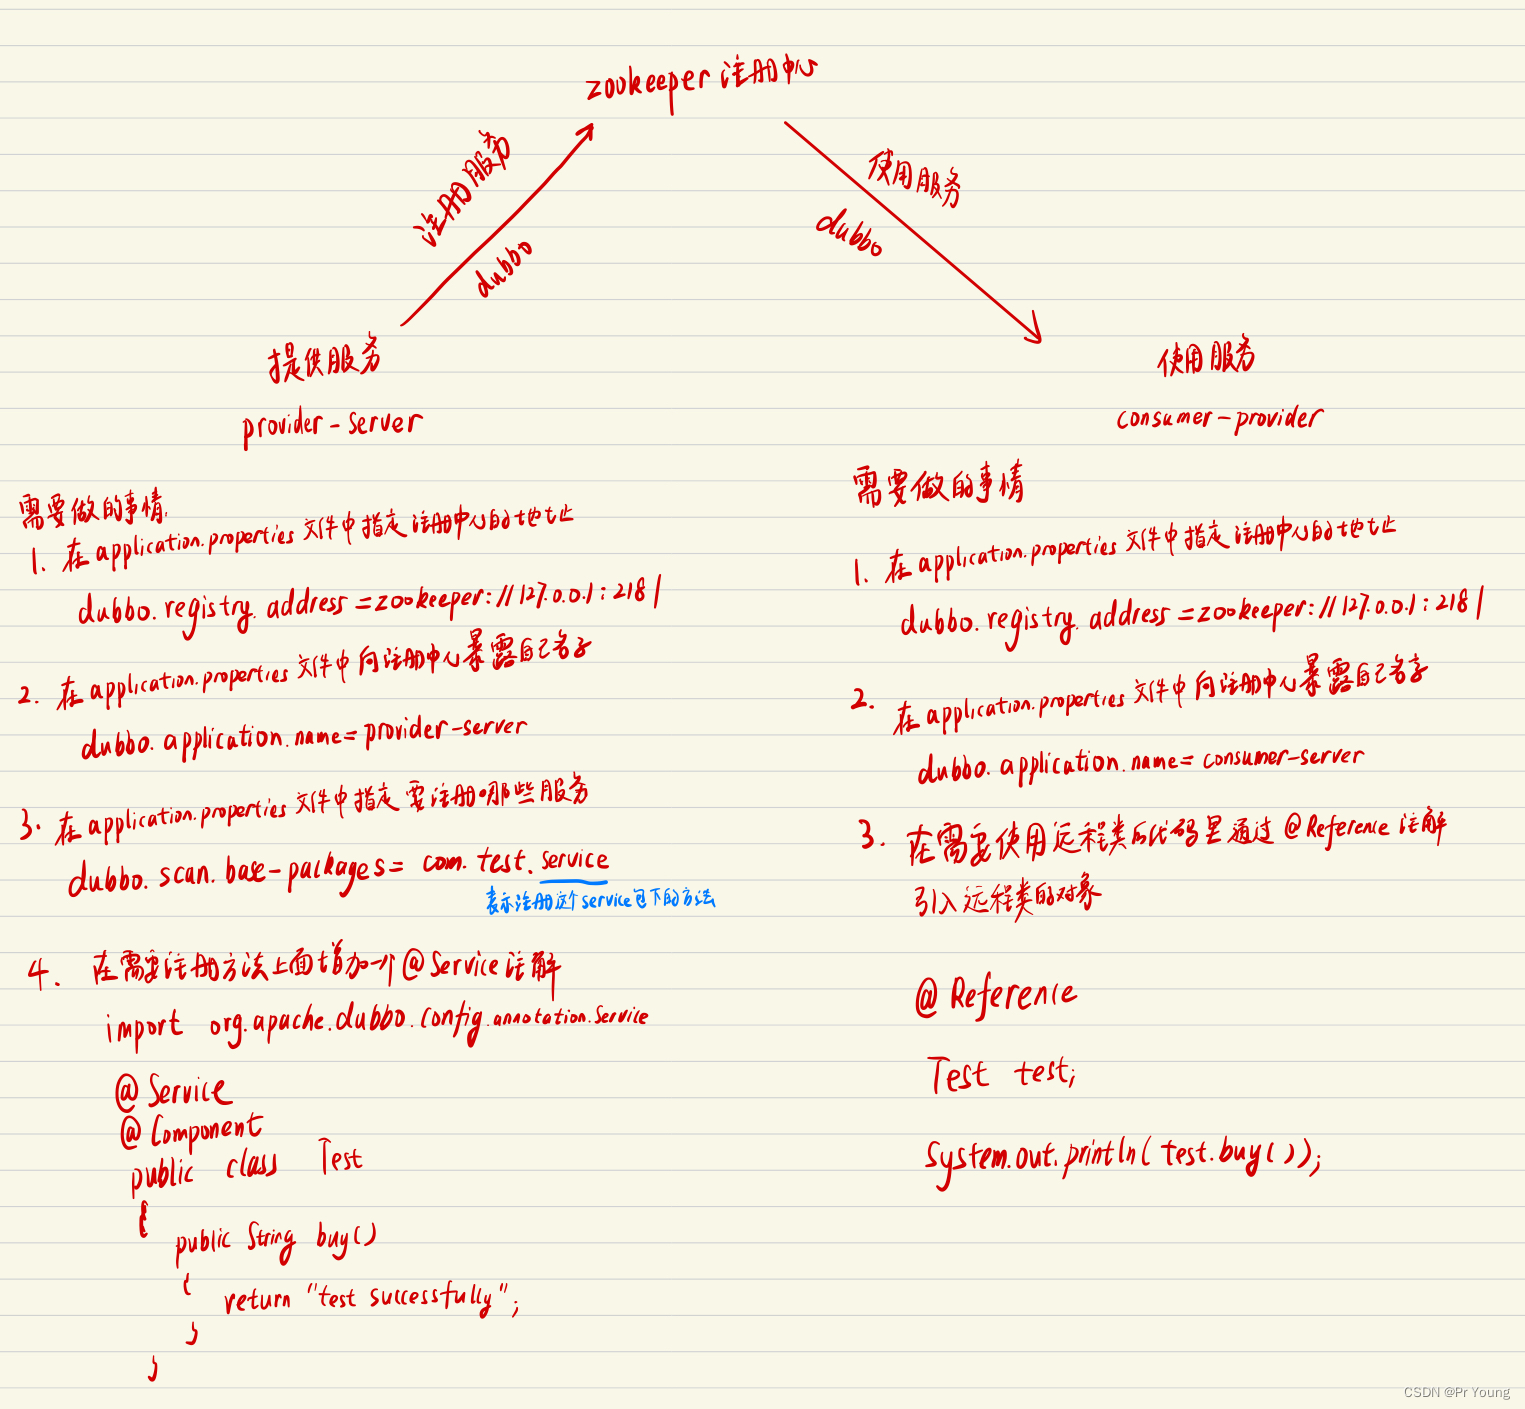 zookeeper 注册中心
注册服务
dubbo
使用服务
dubbo
提供服务
provider-server
需要做的事情
1. 在 application.properties 文件中指定 注册中心的地址
dubbo.registry.address=zookeeper://127.0.0.1:2181
2. 在 application.properties 文件中 向注册中心暴露自己名字
dubbo.application.name=provider-server
3. 在 application.properties 文件中指定 要注册哪些服务
dubbo.scan.base-packages= com.test.service
表示注册这个service包下的方法
4. 在需要注册方法上面增加一个@Service注解
import org.apache.dubbo.config.annotation.Service
@Service
@Component
public class Test
{
public String buy()
{
return "test successfully";
}
}
使用服务
consumer-provider
需要做的事情
1. 在 application.properties 文件中指定 注册中心的地址
dubbo.registry.address=zookeeper://127.0.0.1:2181
2. 在 application.properties 文件中 向注册中心暴露自己名字
dubbo.application.name= consumer-server
3. 在需要使用远程类的代码里通过@Reference注解
引入远程类的对象
@Reference
Test test;
System.out.println(test.buy());
CSDN @Pr Young